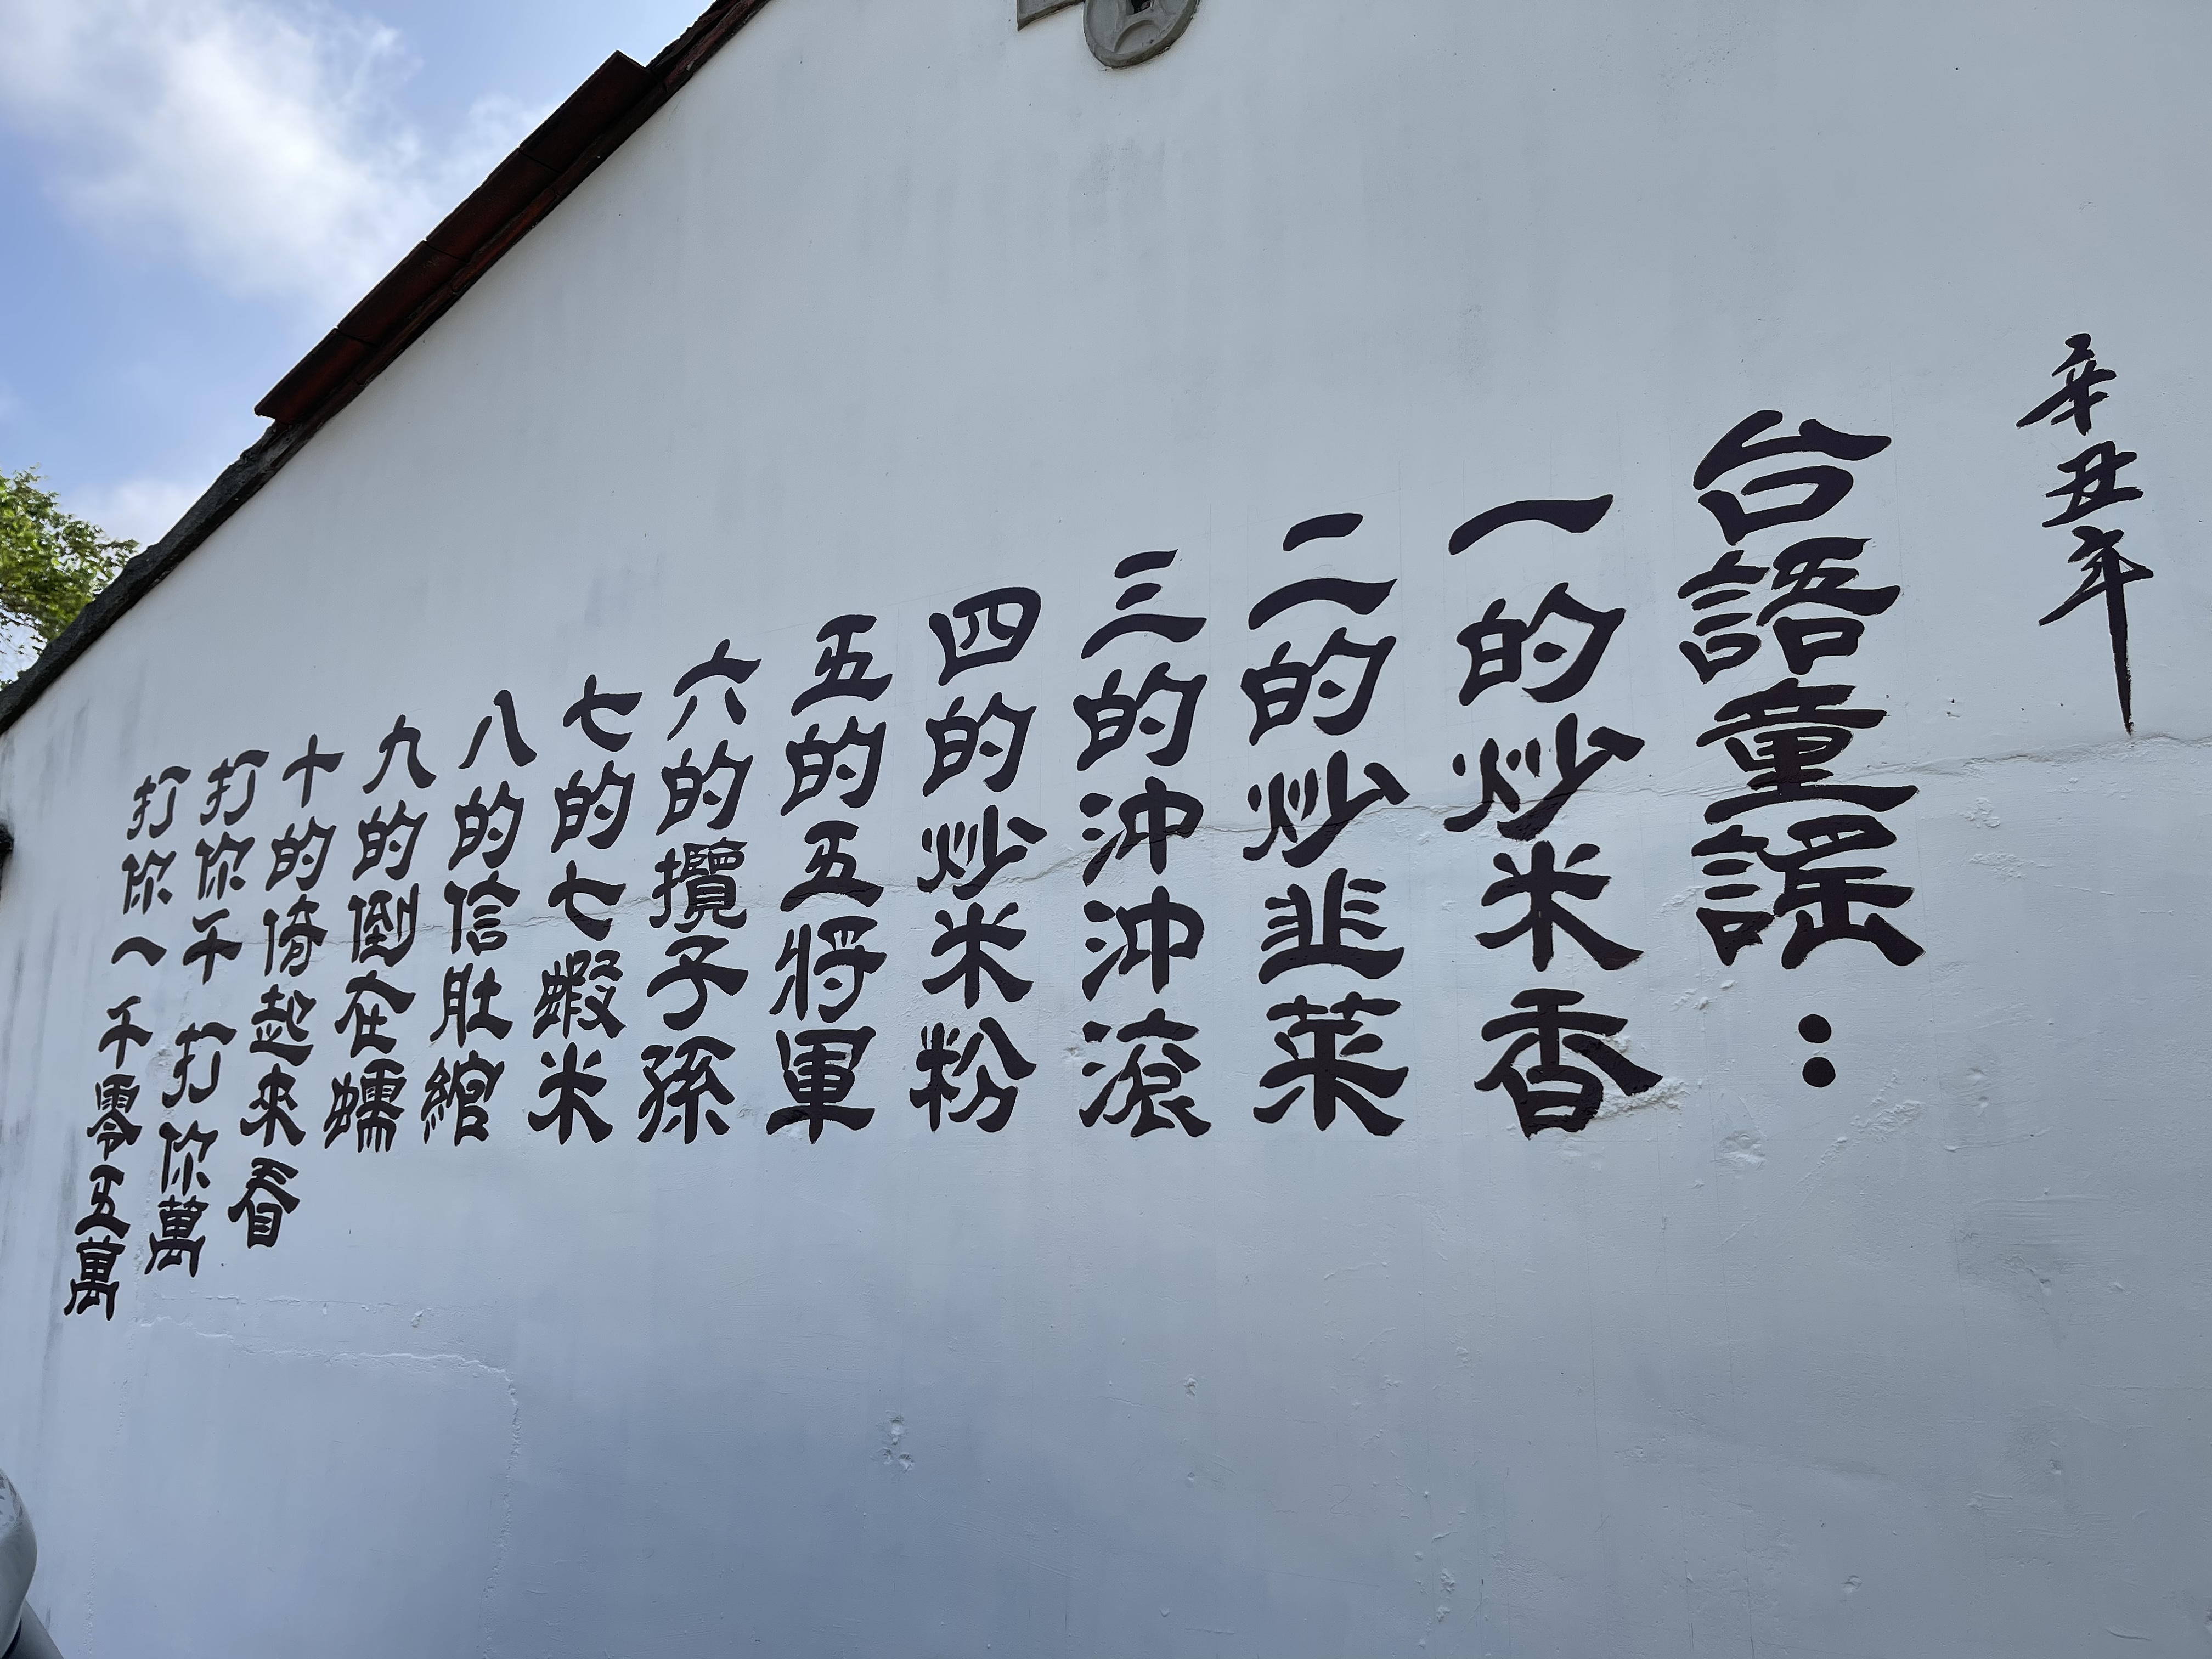 辛丑年
台語童謠：
一的炒米香
二的炒韭菜
三的沖沖滾
四的炒米粉
五的五將軍
六的攬子孫
七的七蝦米
八的信肚綰
九的倒在蠕
十的倚起來看
打你千 打你萬
打你一千零五萬